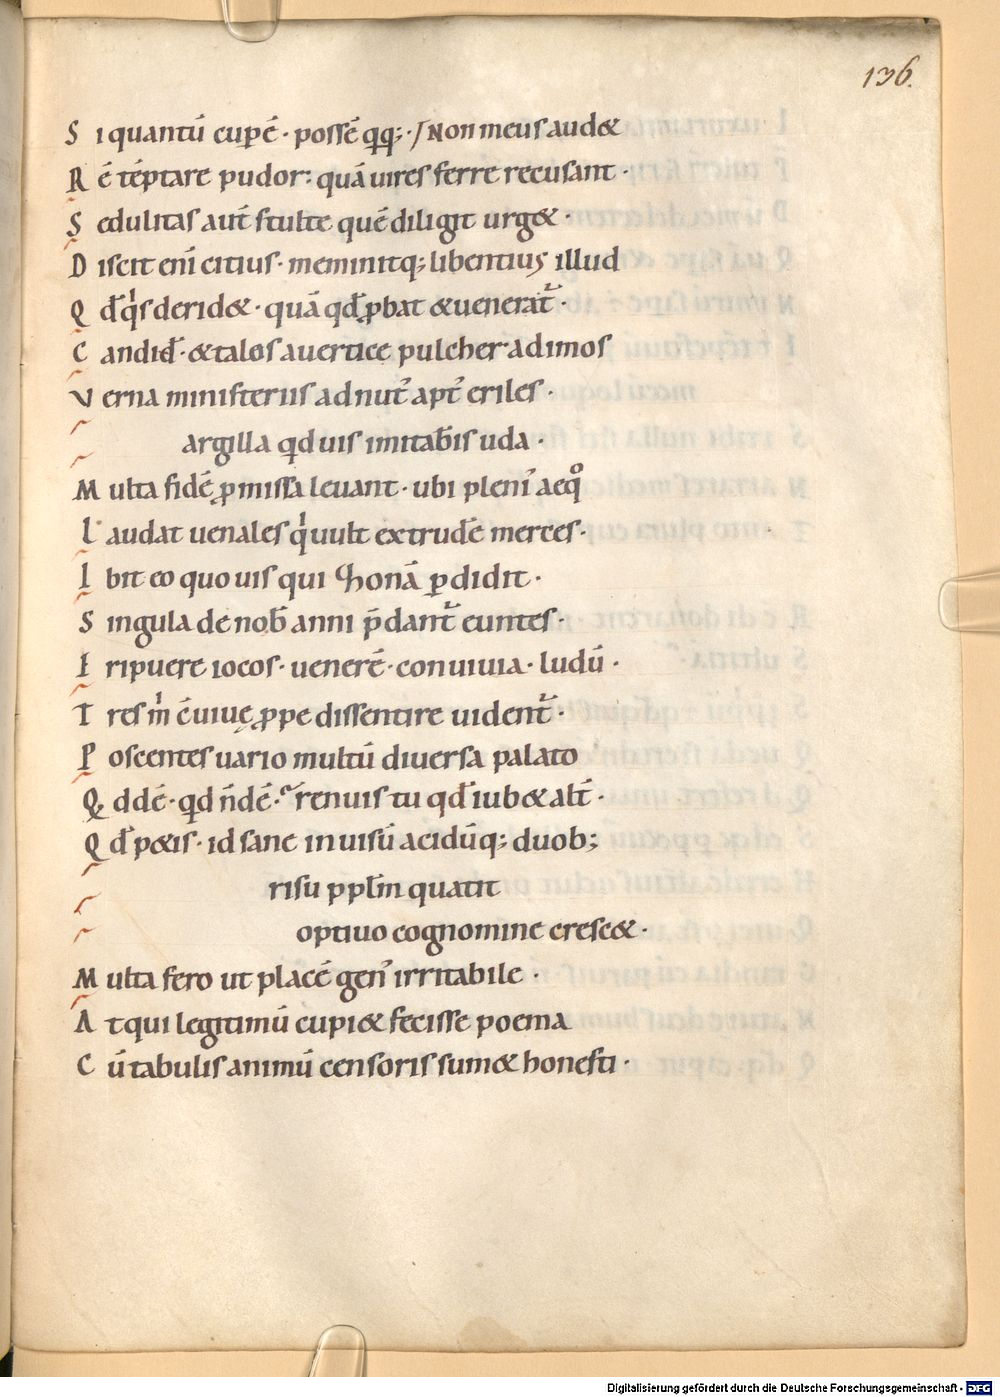 136.
S i quantū cuꝑē · possē qq; · / Non meus audet
R ē tēptare pudor: quā uires ferre recusant ·
S edulitas aut̄ stulte quē diligit urget ·
D iscit eni citius · meminitq; libentius illud
Q d̄ q's deridet · quā qd̄ ꝓbat & uenerat̄ ·
C andid' · & talos a uertice pulcher ad imos
V erna ministeriis ad nut' apt' eriles ·
argilla qd uis imitab̄is uda ·
M ulta fidē ꝓmissa leuant · ubi pleni' aeqͦ
L audat uenales q'uult extrudē merces ·
I bit eo quo uis qui zonā ꝑdidit ·
S ingula de nob̄ anni p̄dant̄ euntes ·
E ripuere iocos · uenerē · conuiuia · ludū ·
T res m' cuiuę ꝓpe dissentire uident̄ ·
P oscentes uario multū diuersa palato
Q, d dē · qd ndē · renuis tu qd̄ iubet alt' ·
Q d̄ petis · id sane inuisū acidūq; duob;
risu pplm quatit
optiuo cognomine crescet ·
M ulta fero ut placē gen' irritabile ·
A t qui legitimū cupiet fecisse poema
C ū tabulis animū censoris sumet honesti ·
Digitalisierung gefördert durch die Deutsche Forschungsgemeinschaft - DFG